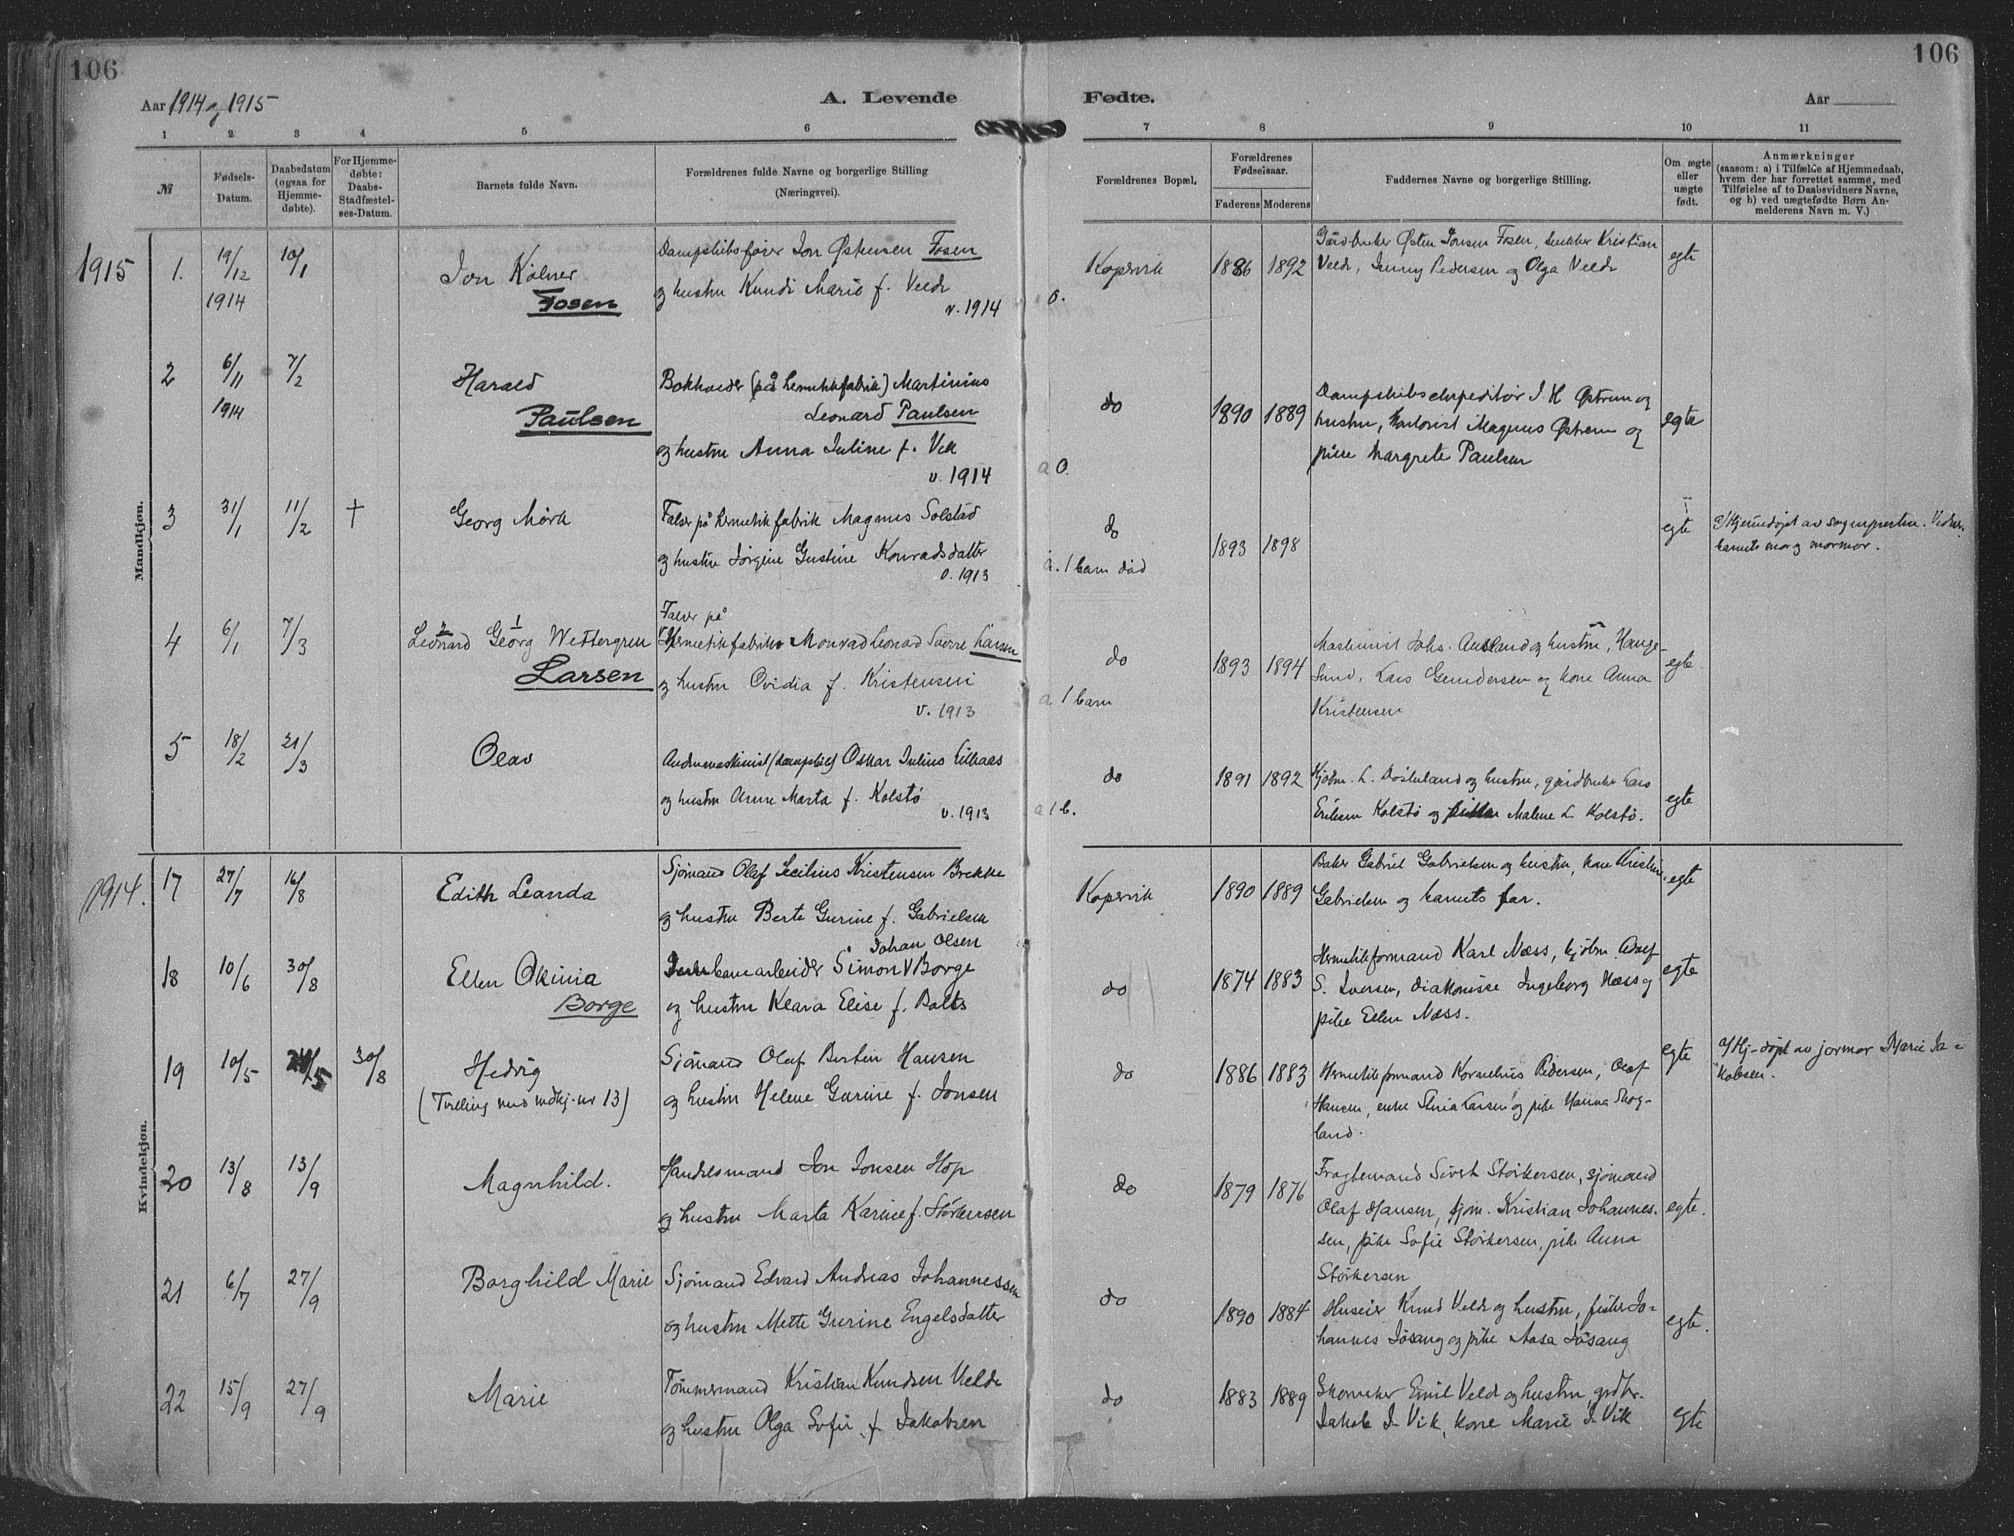 106
106
Aar 1914 og 1915
A. Levende
Fødte.
Aar
1 2 3 4 5 6 7 8 9 10 11
№
Fødsels-
Datum.
Daabsdatum
(ogsaa for
Hjemme-
døbte).
For Hjemme-
døbte:
Daabs-
Stadfæstel-
ses-Datum.
Barnets fulde Navn.
Forældrenes fulde Navne og borgerlige Stilling
(Næringsvei).
Forældrenes Bopæl.
Forældrenes
Fødselsaar.
Faderens Moderens
Faddernes Navne og borgerlige Stilling.
Om ægte
eller
uægte
født.
Anmærkninger
(saasom: a) i Tilfælde af Hjemmedaab,
hvem der har forrettet samme, med
Tilføielse af to Daabsvidners Navne,
og b) ved uægtefødte Børn An-
melderens Navn m. V.)
Mandkjøn.
1915
1. 19/12 1914 10/1
Jon Kolner
Fosen
Dampskibsfører Jon Østensen Fosen
og hustru Kundi Marie f. Velde
v. 1914
0.
Kopervik 1886 1892
Gårdbruker Østen Jonsen Fosen, snekker Kristian
Velde, Jenny Pedersen og Olga Velde
egte
2 6/11 1914 7/2
Harald
Paulsen
Bokholder (på hermetikfabrik) Martinius
Leonard Paulsen
og hustru Anna Juline f. Vik
v. 1914
a 0.
do 1890 1889
Dampskibsekspeditør J. H. Østrem og
hustru, kontorist Magnus Østrem og
pike Margrete Paulsen
egte
3 31/1 11/2 †
Georg Mørk
Falser på hermetikfabrik Magnus Solstad
og hustru Jørgine Gustine Konradsdatter
v. 1913
a. 1 barn død
do 1893 1898
egte
a/ Hjemmedøpt av sognepresten. Vidner:
barnets mor og mormor.
4 6/1 7/3
2 1
Leonard Georg Wettergren
Larsen
Falser på
Hermetikfabrik Monrad Leonard Sverre Larsen
og hustru Ovidia f. Kristensen
v. 1913
a. 1 barn
do 1893 1894
Maskinist Johs. Ausland og hustru, Hauge-
sund, Lars Gundersen og kone Anna
Kristensen
egte
5 18/2 21/3
Olav
Andremaskinist (dampskib) Oskar Julius Lillaas
og hustru Anne Marta f. Kolstø
v. 1913
a 1 b.
do 1891 1892
Kjøbm. L. og hustru, gårdbruker Lars
Eriksen Kolstø og Malene L. Kolstø.
egte
Kvindekjøn.
1914.
17 27/7 16/8
Edith Leanda
Sjømand Olaf Secilius Kristensen Brekke
og hustru Berte Gurine f. Gabrielsen
Kopervik 1890 1889
Baker Gabriel Gabrielsen og hustru, kone Kristine
Gabrielsen og barnets far.
egte
18 10/6 30/8
Ellen Okinia
Borge
Johan Olsen
Jernbanearbeider Simon V Borge
og hustru Klara Elise f. Bolts
do 1874 1883
Hermetikformand Karl Næss, kjøbm. Adolf
S. Iversen, diakonisse Ingeborg Næss og
pike Ellen Næss.
egte
19 10/5 24/5 30/8
Hedvig
(Tvilling med mdkj. nr 13)
Sjömand Olaf Bertin Hansen
og hustru Helene Gurine f. Jonsen
do 1886 1883
Hermetikformand Kornelius Pedersen, Olaf
Hansen, enke Stina Larsen og pike Hanna Skog-
land.
egte
a/ Hj-døpt av jormor Marie Ja-
kobsen.
20 13/8 13/9
Magnhild.
Handelsmand Jon Jonsen Hop
og hustru Marta Karine f. Størkersen
do 1879 1876
Fragtemand Sivert Størkersen, sjømand
Olaf Hansen, sjøm. Kristian Johannes-
sen, pike Sofie Størkersen, pike Anna
Størkersen
egte.
21 6/7 27/9
Borghild Marie
Sjømand Edvard Andreas Johannessen
og hustru Mette Gurine Engelsdatter
do 1890 1884
Huseier Knud Velde og hustru, fisker Jo-
hannes Jøsang og pike Aasa Jøsang
egte.
22 15/9 27/9
Marie
Tömmermand Kristian Knudsen Velde
og hustru Olga Sofie f. Jakobsen
do 1883 1889
Skomaker Emil Velde og hustru, grdbr.
Jakob J. Vik, kone Marie J. Vik
egte